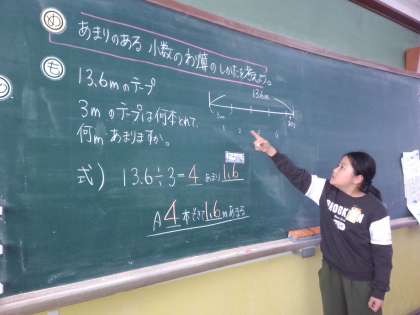 め
あまりのある 小数のわり算のしかたを考えよう。
も
13.6mのテープ
3mのテープは何本とれて、
何mあまりますか。
13.6m
3m
式) 13.6÷3=4あまり1.6
A 4本できて1.6mあまる
BROOKLYN